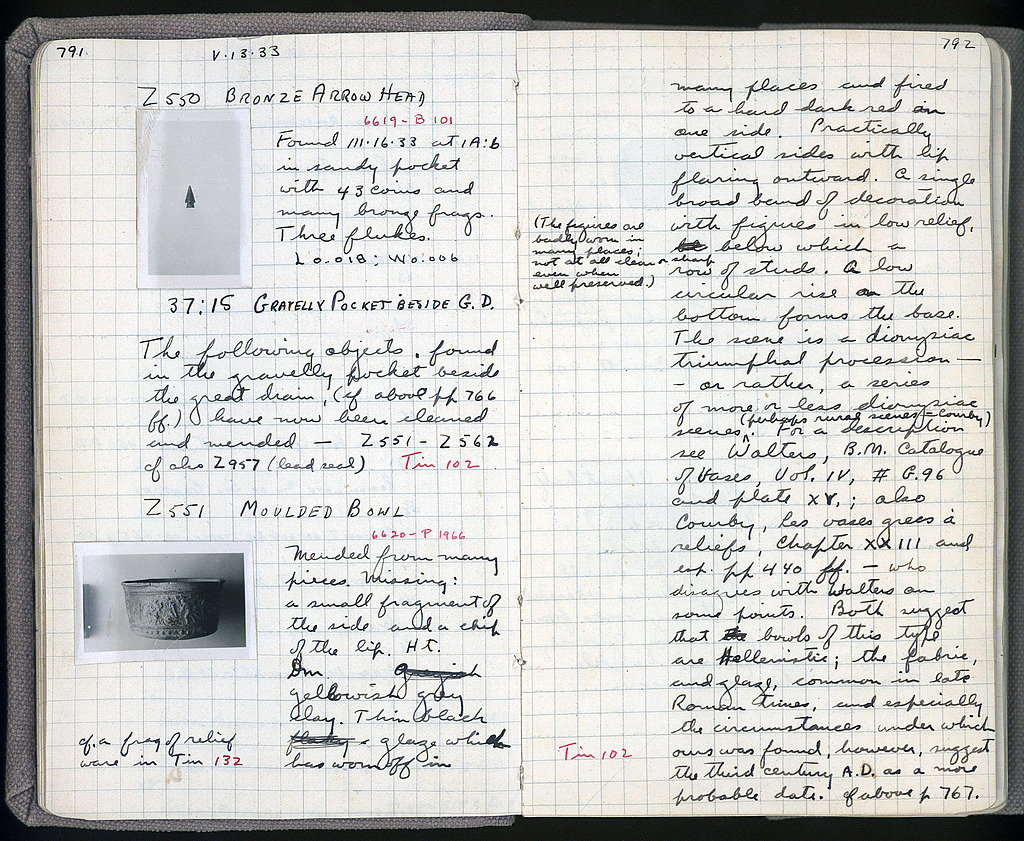 791
V.13.33
Z 550 BRONZE ARROW HEAD
6619-B 101
Found III.16.33 at 1A:6
in sandy pocket
with 43 coins and
many bronze frags.
Three flukes.
L 0.018; W 0.006
37:15 GRAVELLY POCKET BESIDE G.D.
The following objects, found
in the gravelly pocket beside
the great drain, (cf above pp 766
ff.) have now been cleaned
and mended — Z551 - Z562
cf also Z957 (lead seal) Tin 102
Z 551 MOULDED BOWL
6620-P 1966
Mended from many
pieces. Missing:
a small fragment of
the side and a chip
of the lip. Ht.
Dm.
yellowish grey
clay. Thin black
glaze which
has worn off in
cf. a frag of relief
ware in Tin 132
792
many places and fired
to a hard dark red on
one side. Practically
vertical sides with lip
flaring outward. A single
broad band of decoration
with figures in low relief,
below which a
row of studs. A low
circular rise on the
bottom forms the base.
The scene is a dionysiac
triumphal procession —
- or rather, a series
of more or less dionysiac
(perhaps rural scenes = Courby)
scenes. For a description
see Walters, B.M. Catalogue
of Vases, Vol. IV, # G.96
and plate XV,; also
Courby, Les vases grecs à
reliefs, Chapter XXIII and
esp. pp 440 ff. - who
disagrees with Walters on
some points. Both suggest
that bowls of this type
are Hellenistic; the fabric,
and glaze, common in late
Roman times, and especially
the circumstances under which
ours was found, however, suggest
the third century A.D. as a more
probable date. cf above p 767.
(The figures are
badly worn in
many places;
not at all clear or sharp
even when
well preserved.)
Tin 102